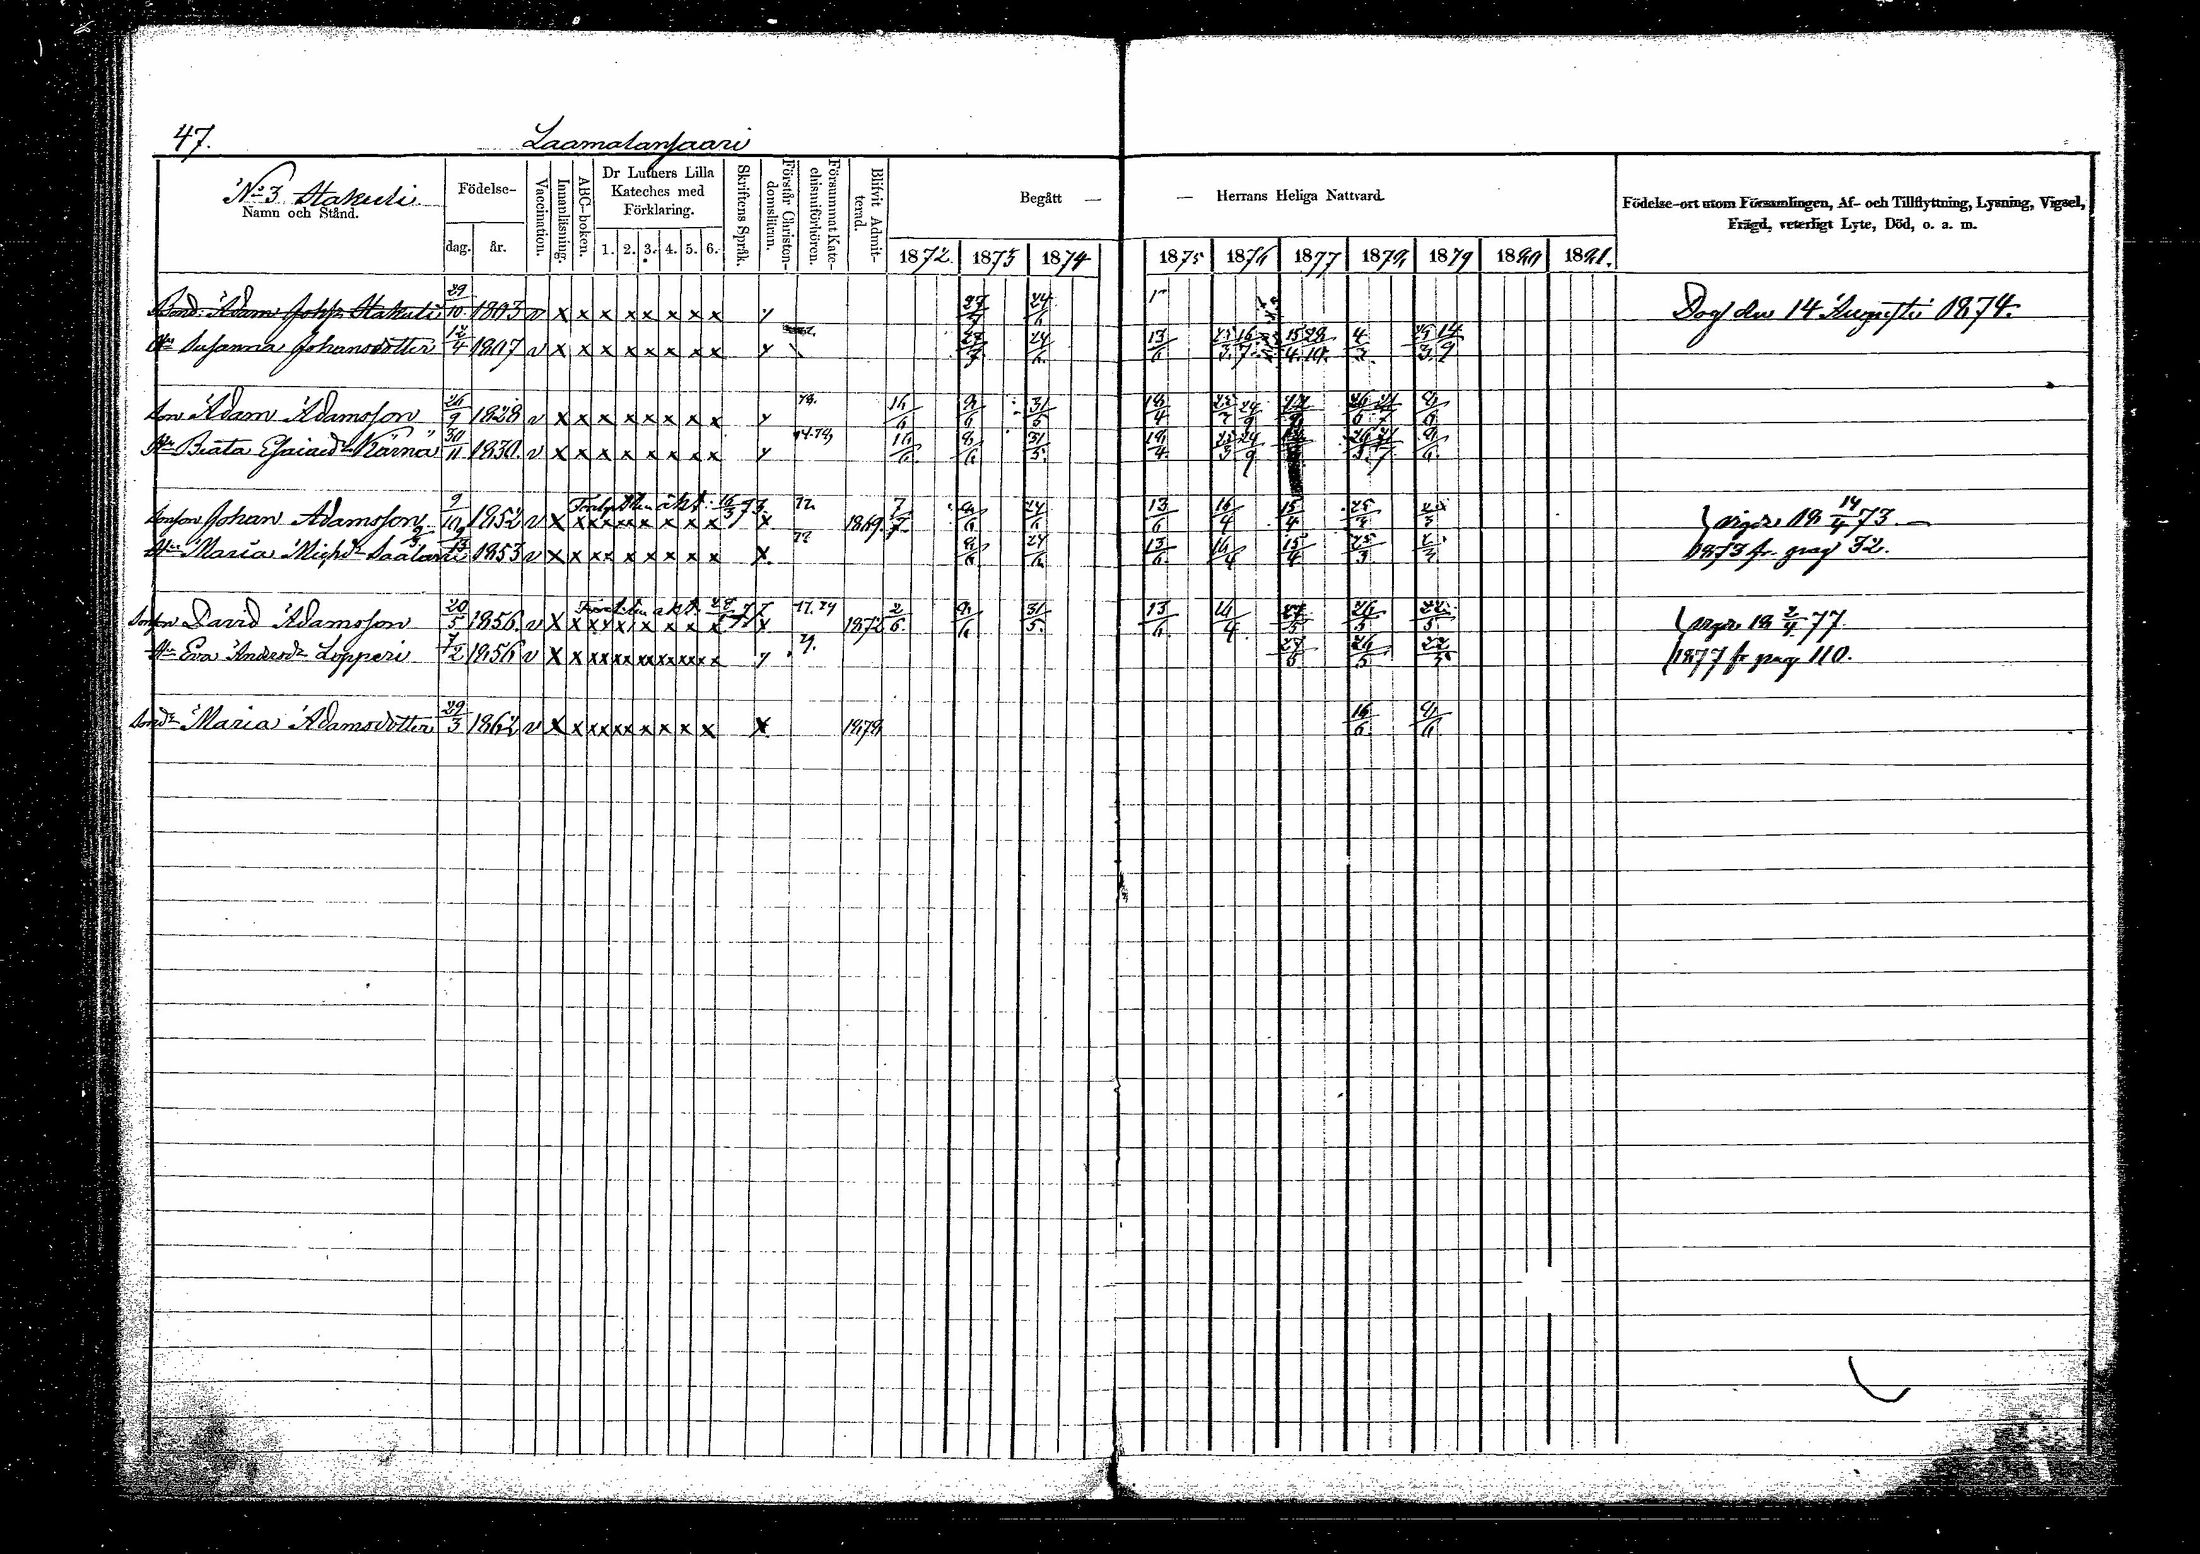 47. Laamalansaari
No 3 Hakuli
Namn och Stånd.
Födelse-
dag. år.
Vaccination.
Innanläsning.
ABC-boken.
Dr Luthers Lilla Kateches med Förklaring.
1. 2. 3. 4. 5. 6.
Skriftens Språk.
Förstår Christendomsläran.
Försummat Katechismiförhören.
Blifvit Admitterad.
Begått — — Herrans Heliga Nattvard.
1872 1873 1874 1875 1876 1877 1878 1879 1880 1881.
Födelse-ort utom Församlingen, Af- och Tillflyttning, Lysning, Vigsel, Frägd, veterligt Lyte, Död, o. a. m.
Bond. Adam Johsn Hakuli 29/10 1803 v x x x x x x x x y 27/7 24/6 Dog den 14 Augusti 1874.
Hu Susanna Johansdotter 12/4 1807 v x x x x x x x x y 27/7 24/6 13/6 4/3
Son Adam Adamsson 26/9 1828 v x x x x x x x x y 78. 16/6 8/6 31/5 18/4 8/6
Hu Beata Esaiædr Kärnä 30/11 1830. v x x x x x x x x y 74.78, 16/6 8/6 31/5 18/4 8/6
Sonson Johan Adamsson 9/10 1852 v x x x x x x x x 16/3 73. x 72 1869. 7/7 8/6 24/6 13/6 16/4 15/4 25/3 vigde 18 14/4 73. —
Hu Maria Michdr Saalanti 1853 v x x x x x x x x x. 8/6 24/6 13/6 16/4 15/4 25/3 1873 fr. pag 32.
Sonson David Adamsson 20/5 1856. v x x x x x x x x x 77.79 1872 2/6 8/6 31/5 13/6 16/4 27/5 26/5 22/5 vigde 18 2/4 77
Hu Eva Andersdr Lopperi 7/2 1856 v x x xx xx xx xx xx x y 79. 27/5 26/5 22/5 1877 fr pag 110.
Sondr Maria Adamsdotter 29/3 1862 v x x xx xx x x x x x 1878 16/6 8/6